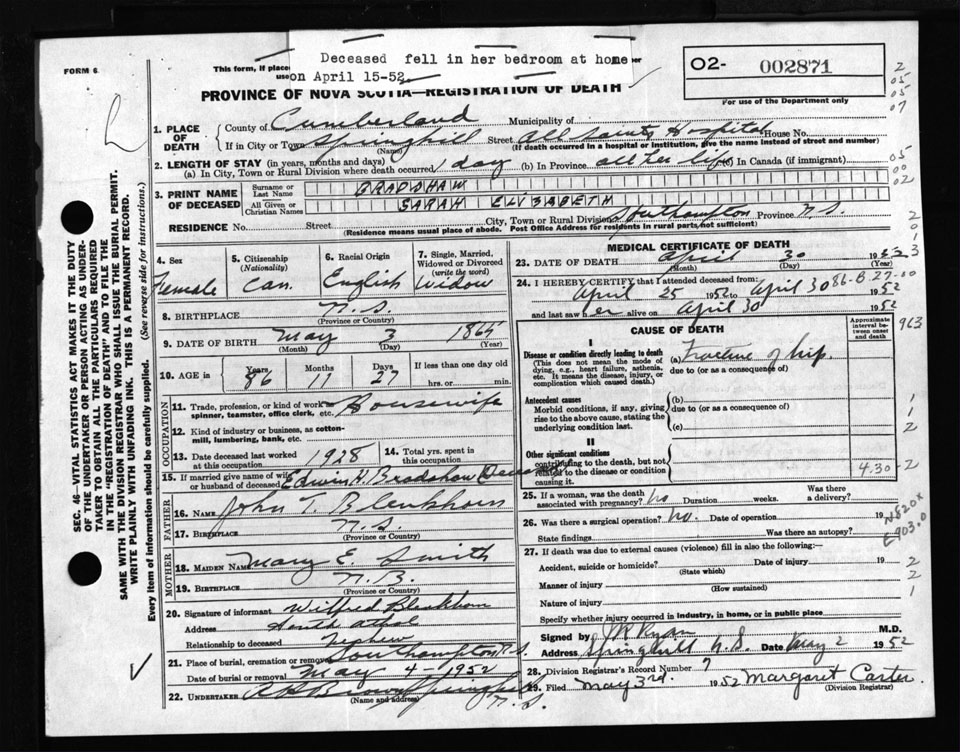 FORM 6
This form, if place
use
Deceased fell in her bedroom at home
on April 15-52.
02- 002871
For use of the Department only
PROVINCE OF NOVA SCOTIA—REGISTRATION OF DEATH
1. PLACE OF DEATH
County of Cumberland Municipality of
If in City or Town Springhill Street All Saints Hospital House No.
(Name) (If death occurred in a hospital or institution, give the name instead of street and number)
2. LENGTH OF STAY (in years, months and days)
(a) In City, Town or Rural Division where death occurred 1 day (b) In Province all her life (c) In Canada (if immigrant)
3. PRINT NAME OF DECEASED
Surname or Last Name BRADSHAW
All Given or Christian Names SARAH ELIZABETH
RESIDENCE No. Street City, Town or Rural Division Southampton Province N.S.
(Residence means usual place of abode. Post Office Address for residents in rural parts, not sufficient)
4. Sex
Female
5. Citizenship (Nationality)
Can.
6. Racial Origin
English
7. Single, Married, Widowed or Divorced (write the word)
Widow
8. BIRTHPLACE N.S.
(Province or Country)
9. DATE OF BIRTH May 3 1865
(Month) (Day) (Year)
10. AGE in Years 86 Months 11 Days 27 If less than one day old
hrs. or min.
OCCUPATION
11. Trade, profession, or kind of work as spinner, teamster, office clerk, etc. Housewife
12. Kind of industry or business, as cotton-mill, lumbering, bank, etc.
13. Date deceased last worked at this occupation 1928
14. Total yrs. spent in this occupation
15. If married give name of wife or husband of deceased Edwin H. Bradshaw
FATHER
16. NAME John T. Blenkhorn
17. BIRTHPLACE N.S.
(Province or Country)
MOTHER
18. MAIDEN NAME Mary E. Smith
19. BIRTHPLACE N.B.
(Province or Country)
20. Signature of informant Wilfred Blenkhorn
Address South Athol
Relationship to deceased Nephew
21. Place of burial, cremation or removal Southampton N.S.
Date of burial or removal May 4 - 1952
22. UNDERTAKER Brown Springhill
(Name and address) N.S.
MEDICAL CERTIFICATE OF DEATH
23. DATE OF DEATH April 30 1952
(Month) (Day) (Year)
24. I HEREBY CERTIFY that I attended deceased from:
April 25 1952 to April 30 1952
86-B 27-00
and last saw her alive on April 30 1952
CAUSE OF DEATH
Approximate interval between onset and death
I
Disease or condition directly leading to death
(This does not mean the mode of dying, e.g., heart failure, asthenia, etc. It means the disease, injury, or complication which caused death.)
(a) Fracture of hip.
due to (or as a consequence of)
Antecedent causes
Morbid conditions, if any, giving rise to the above cause, stating the underlying condition last.
(b)
due to (or as a consequence of)
(c)
II
Other significant conditions contributing to the death, but not related to the disease or condition causing it.
4.30
25. If a woman, was the death associated with pregnancy? No Duration weeks. Was there a delivery?
26. Was there a surgical operation? No. Date of operation 19
State findings Was there an autopsy?
27. If death was due to external causes (violence) fill in also the following:—
Accident, suicide or homicide? Date of injury 19
(State which)
Manner of injury
(How sustained)
Nature of injury
Specify whether injury occurred in industry, in home, or in public place
Signed by J R Ryan M.D.
Address Springhill N.S. Date May 2 1952
28. Division Registrar's Record Number 7
29. Filed May 3rd. 1952 Margaret Carter
(Division Registrar)
SEC. 46—VITAL STATISTICS ACT MAKES IT THE DUTY
OF THE UNDERTAKER OR PERSON ACTING AS UNDER-
TAKER TO OBTAIN ALL THE PARTICULARS REQUIRED
IN THE "REGISTRATION OF DEATH" AND TO FILE THE
SAME WITH THE DIVISION REGISTRAR WHO SHALL ISSUE THE BURIAL PERMIT.
WRITE PLAINLY WITH UNFADING INK. THIS IS A PERMANENT RECORD.
Every item of information should be carefully supplied. (See reverse side for instructions.)
2
05
05
07
05
00
02
2
0
1
3
963
1
2
2
N820x
E903.0
2
2
1